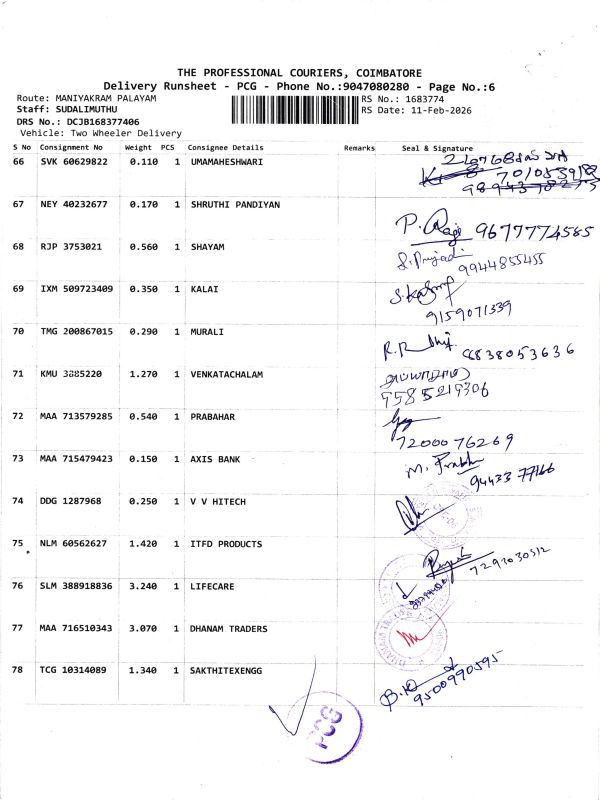 THE PROFESSIONAL COURIERS, COIMBATORE
Delivery Runsheet - PCG - Phone No.:9047080280 - Page No.:6
Route: MANIYAKRAM PALAYAM RS No.: 1683774
Staff: SUDALIMUTHU RS Date: 11-Feb-2026
DRS No.: DCJB168377406
Vehicle: Two Wheeler Delivery
S No Consignment No Weight PCS Consignee Details Remarks Seal & Signature
66 SVK 60629822 0.110 1 UMAMAHESHWARI
67 NEY 40232677 0.170 1 SHRUTHI PANDIYAN
P. Raji 9677774585
68 RJP 3753021 0.560 1 SHAYAM
9944855455
69 IXM 509723409 0.350 1 KALAI
9159071339
70 TMG 200867015 0.290 1 MURALI
8838053636
71 KMU 3885220 1.270 1 VENKATACHALAM
9585219306
72 MAA 713579285 0.540 1 PRABAHAR
7200076269
73 MAA 715479423 0.150 1 AXIS BANK
M. Prabh
9443377166
74 DDG 1287968 0.250 1 V V HITECH
75 NLM 60562627 1.420 1 ITFD PRODUCTS
76 SLM 388918836 3.240 1 LIFECARE
77 MAA 716510343 3.070 1 DHANAM TRADERS
78 TCG 10314089 1.340 1 SAKTHITEXENGG
9500990595
PCG